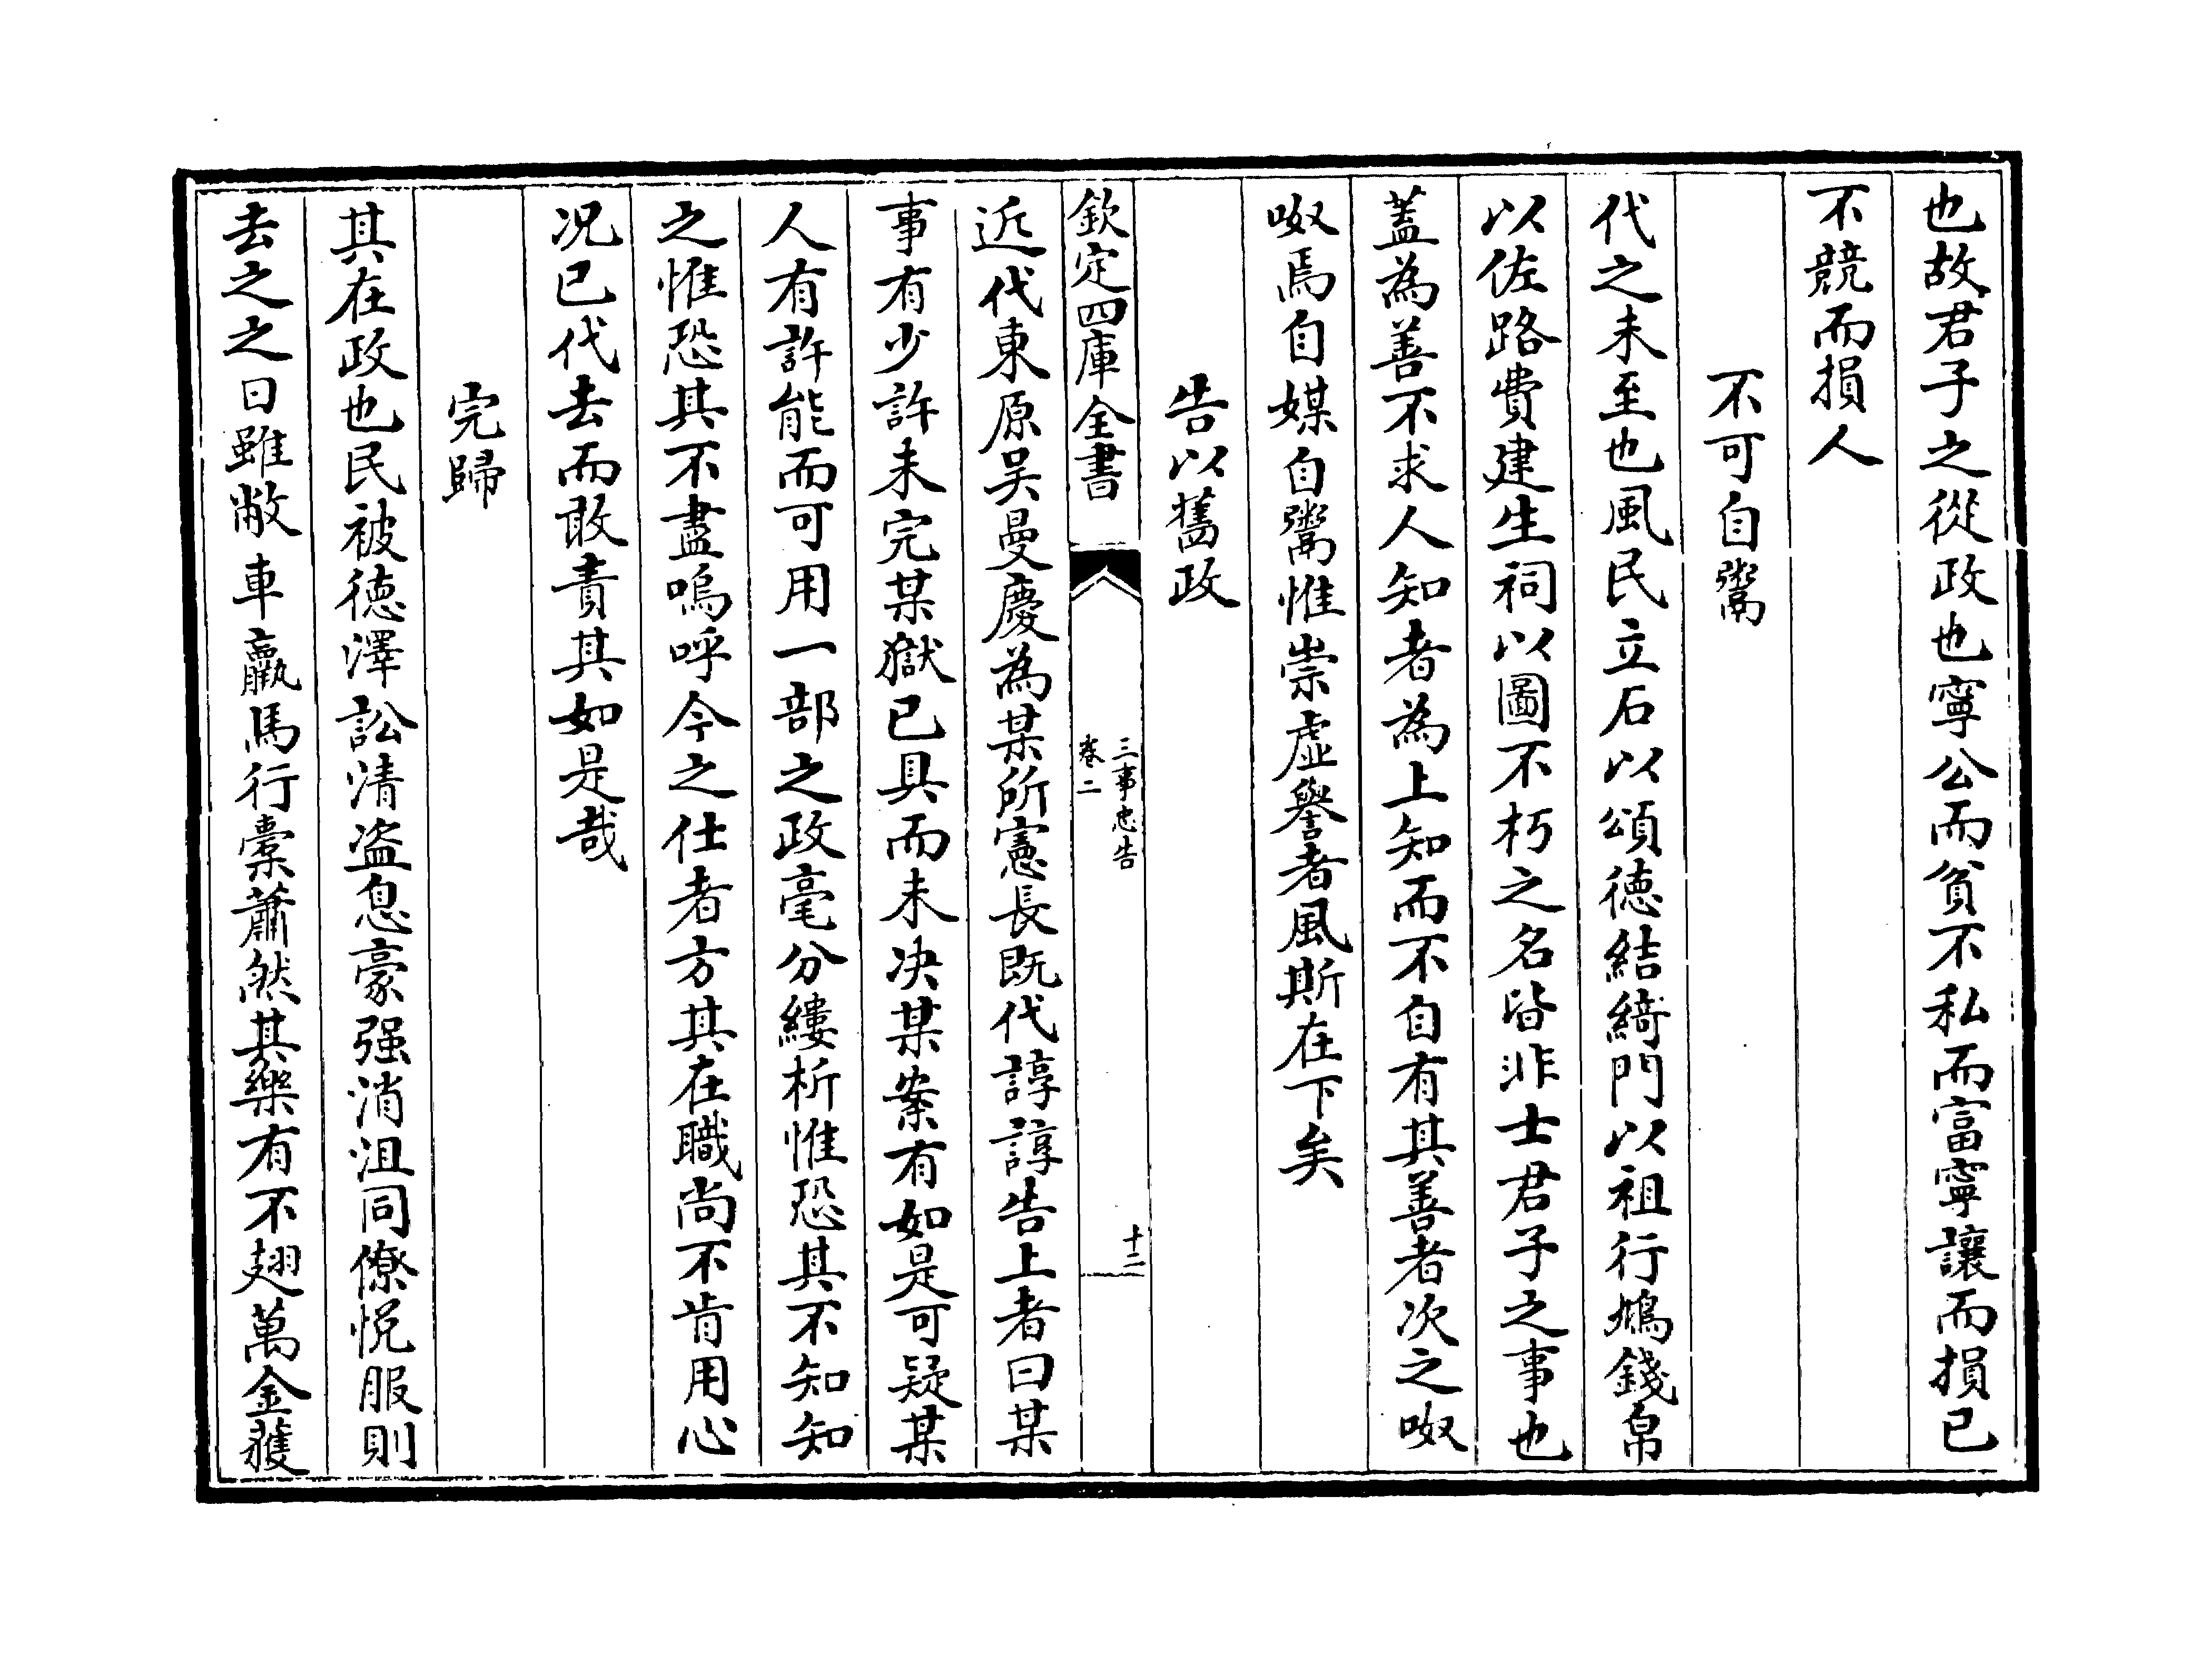 也故君子之從政也寧公而貧不私而富寧讓而損已
不競而損人
不可自鬻
代之未至也風民立石以頌徳結綺門以祖行鳩錢帛
以佐路費建生祠以圖不朽之名皆非士君子之事也
蓋為善不求人知者為上知而不自有其善者次之呶
呶焉自媒自鬻惟崇虚譽者風斯在下矣
告以舊政
欽定四庫全書
三事忠告
卷二
十二
近代東原吴曼慶為某所憲長既代諄諄告上者曰某
事有少許未完某獄已具而未决某案有如是可疑某
人有許能而可用一部之政毫分縷析惟恐其不知知
之惟恐其不盡嗚呼今之仕者方其在職尚不肯用心
况已代去而敢責其如是哉
完歸
其在政也民被徳澤訟清盗息豪强消沮同僚悦服則
去之之日雖敝車羸馬行橐蕭然其樂有不翅萬金獲